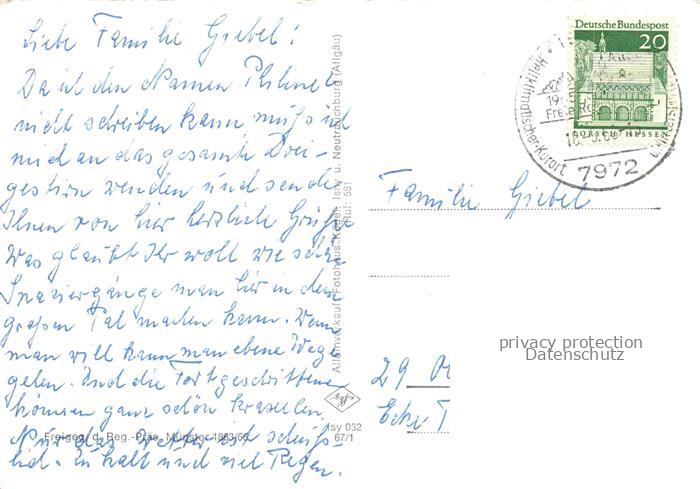 Liebe Familie Giebel!
Da ich den Namen
nicht schreiben kann muß ich
mich an das gesamte Drei-
gestirn wenden und sende
Ihnen von hier herzliche Grüße
Was glaubt Ihr wohl wie schöne
Spaziergänge man hier in dem
großen Tal machen kann. Wenn
man will kann man ebene Wege
gehen. Und die Fortgeschrittenen
können ganz schön kraxeln.
Nur das Wetter ist scheuß-
lich. Zu kalt und viel Regen.
Freigeg. d. Reg.-Präs. Münster 1863/66
Isy 032
67/1
Alleinverkauf: Fotohaus Keger, Isny u. Neutrauchburg (Allgäu)
Ruf: 581
Deutsche Bundespost
20
LORSCH HESSEN
Heilklimatischer Kurort
7972
Familie Giebel
29
privacy protection
Datenschutz